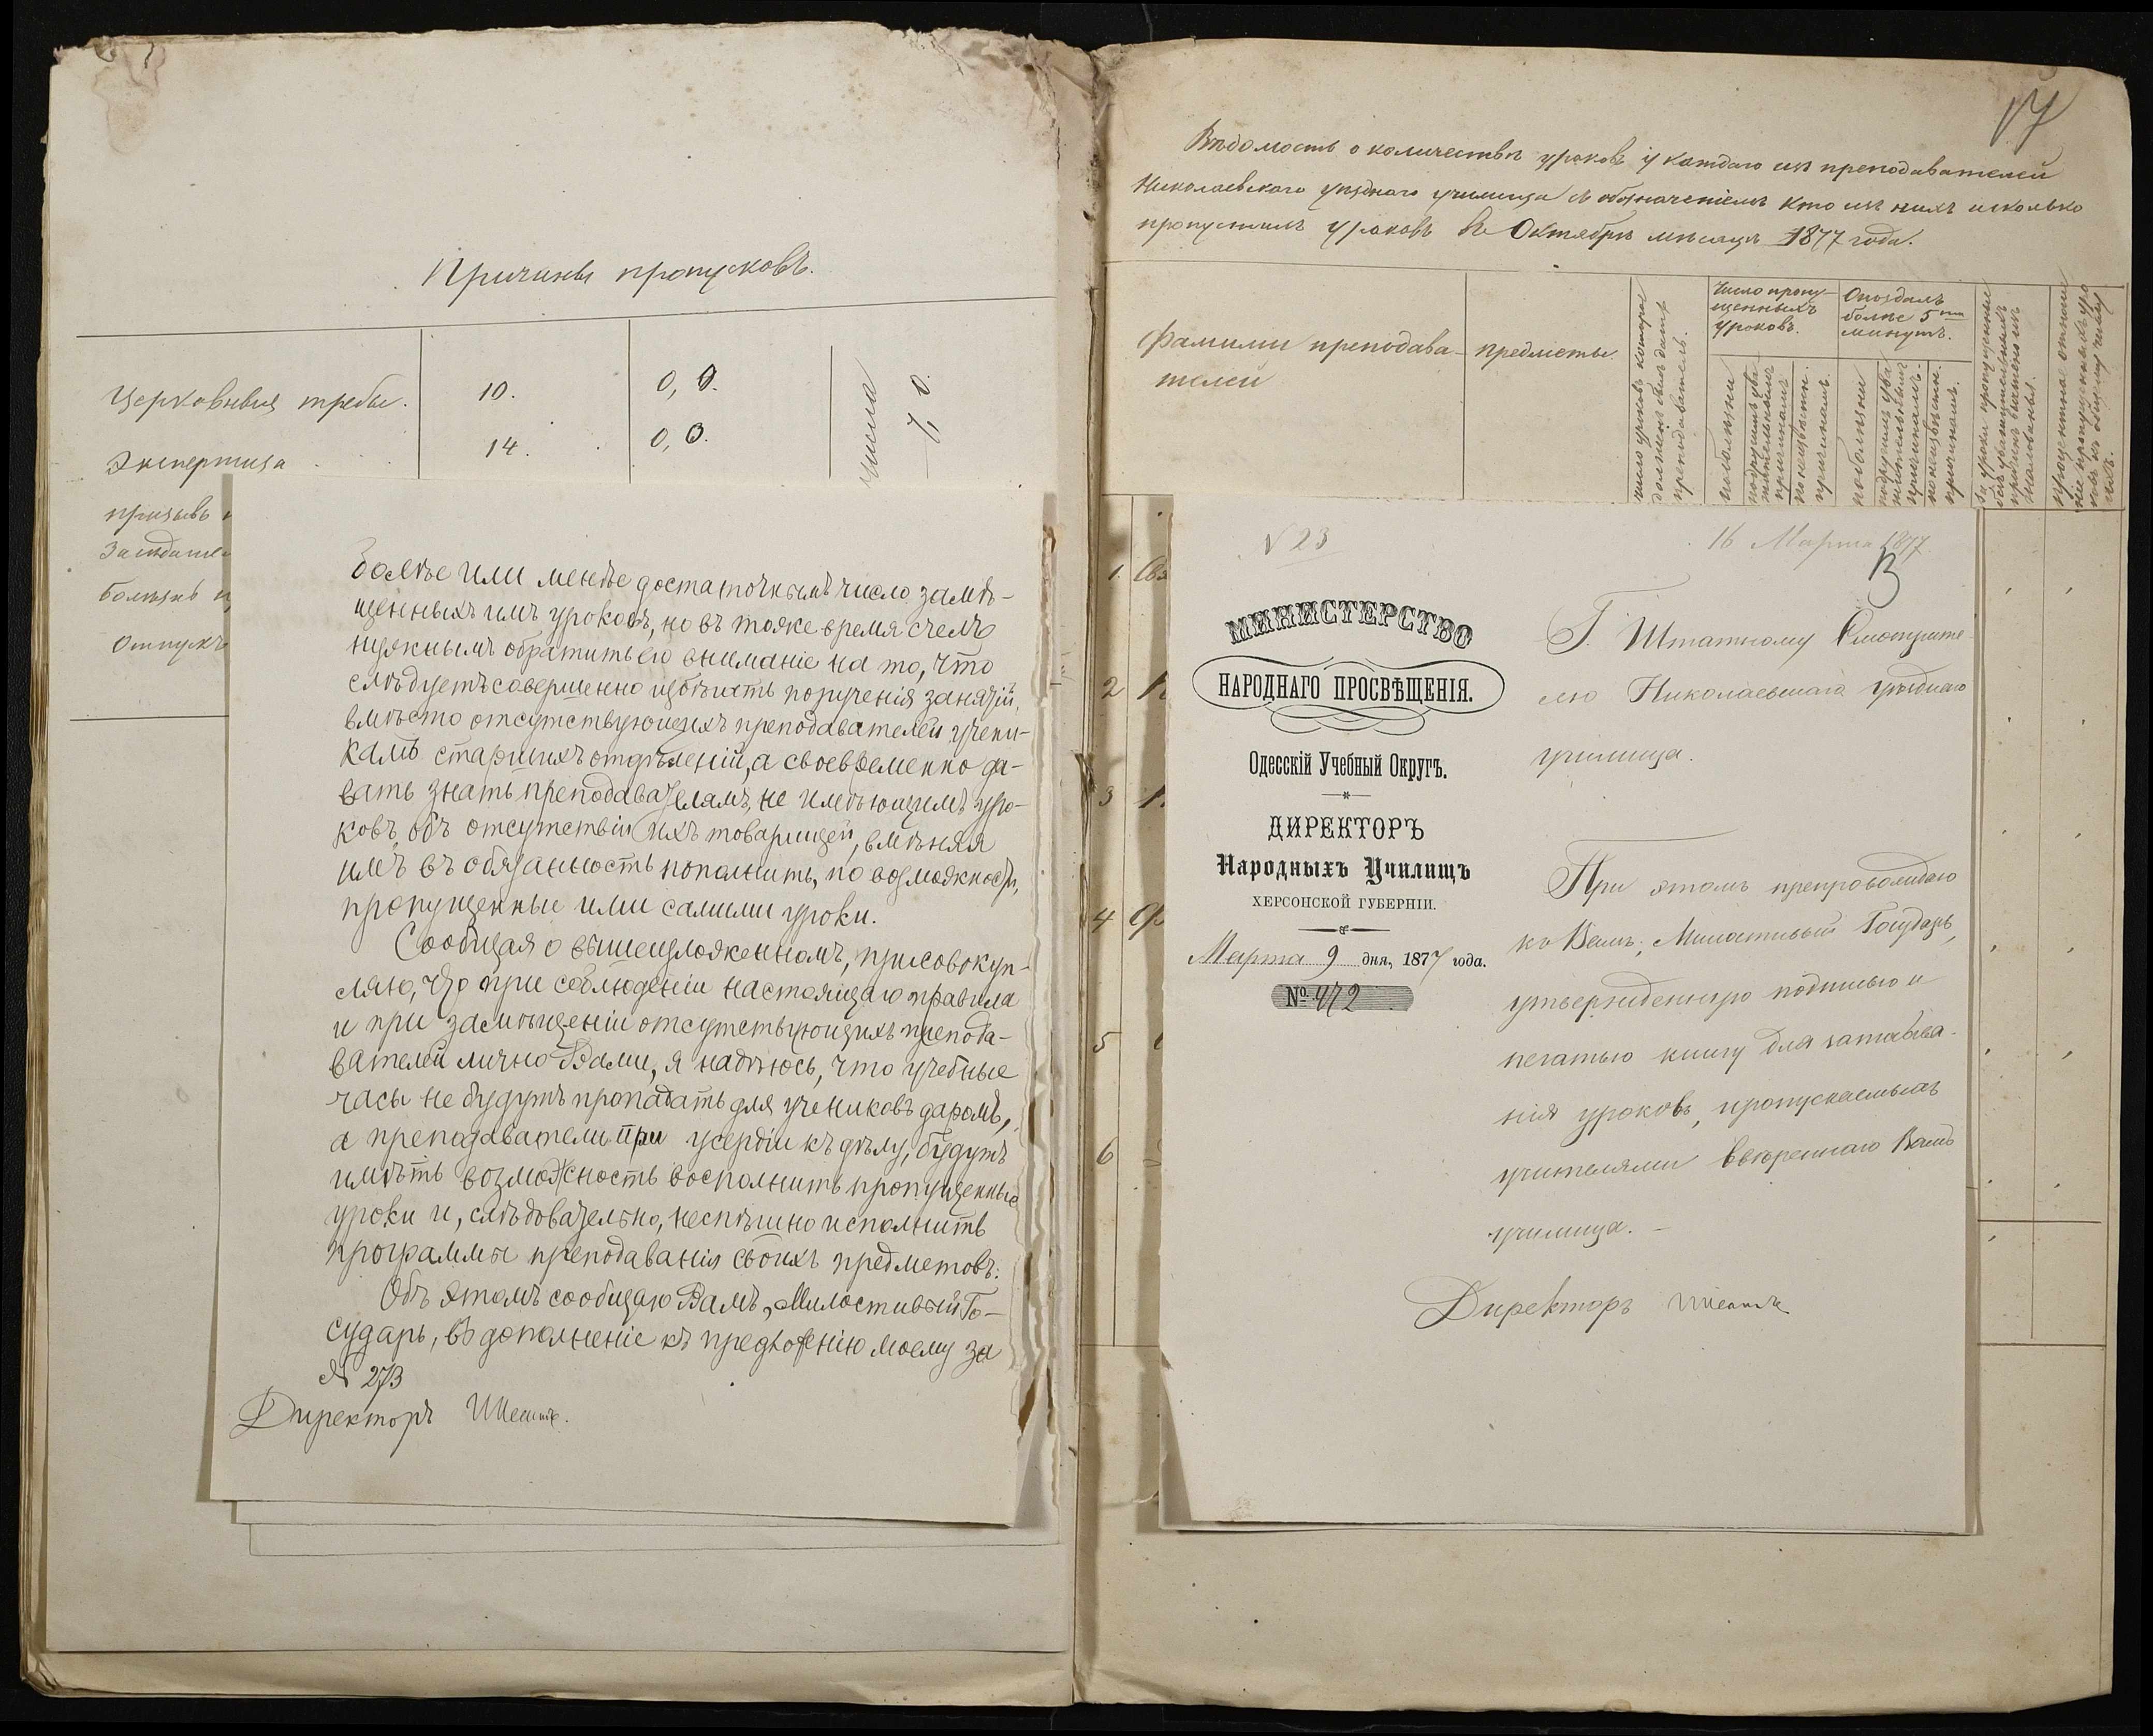 Причины пропусковъ.
Церковныя требы. 10. 0,0. числа % 0.
Экспертиза 14. 0,0.
призывъ
Заседате
болѣзнь
Отпускъ
Болѣе или менѣе достаточнымъ число замѣ-
щенныхъ имъ уроковъ, но въ тоже время счелъ
нужнымъ обратить его вниманіе на то, что
слѣдуетъ совершенно избѣгать порученія занятій,
вмѣсто отсутствующихъ преподавателей учени-
камъ старшихъ отдѣленій, а своевременно да-
вать знать преподавателямъ, не имѣющимъ уро-
ковъ, объ отсутствіи ихъ товарищей, вмѣняя
имъ въ обязанность пополнить, по возможности,
пропущенные ими самими уроки.
Сообщая о вышеизложенномъ, присовокуп-
ляю, что при соблюденіи настоящаго правила
и при замѣщеніи отсутствующихъ препода-
вателей лично Вами, я надѣюсь, что учебные
часы не будутъ пропадать для учениковъ даромъ,
а преподаватели при усердіи къ дѣлу, будутъ
имѣть возможность восполнить пропущенные
уроки и, слѣдовательно, неспѣшно исполнить
программы преподаванія своихъ предметовъ.
Объ этомъ сообщаю Вамъ, Милостивый Го-
сударь, въ дополненіе къ предложенію моему за
№ 273
Директоръ
17
Вѣдомость о количествѣ уроковъ у каждаго изъ преподавателей
Николаевскаго уѣзднаго училища съ обозначеніемъ кто изъ нихъ и сколько
пропустилъ уроковъ въ Октябрѣ мѣсяцѣ 1877 года.
Фамиліи преподава-
телей
предметы.
число уроковъ которые
долженъ былъ дать
преподаватель.
Число пропу-
щенныхъ
уроковъ.
по болѣзни
по другимъ ува-
жительнымъ
причинамъ
по неизвѣстн.
причинамъ.
Опоздалъ
болѣе 5ти
минутъ.
по болѣзни
по другимъ ува-
жительнымъ
причинамъ.
по неизвѣстн.
причинамъ.
За уроки пропущенные
безъ уважительныхъ
причинъ
процентное отноше-
ніе пропущенныхъ уро-
ковъ къ общему числу
ихъ.
1.
2
3
4
5
6
№ 23
16 Марта 1877.
13
МИНИСТЕРСТВО
НАРОДНАГО ПРОСВѢЩЕНІЯ.
Одесскій Учебный Округъ.
ДИРЕКТОРЪ
Народныхъ Училищъ
ХЕРСОНСКОЙ ГУБЕРНІИ.
Марта 9 дня, 1877 года.
№ 472
Г. Штатному Смотрите-
лю Николаевскаго уѣзднаго
училища.
При этомъ препровождаю
къ Вамъ, Милостивый Государь,
утвержденную подписью и
печатью книгу для записыва-
нія уроковъ, пропускаемыхъ
учителями ввѣреннаго Вамъ
училища. –
Директоръ